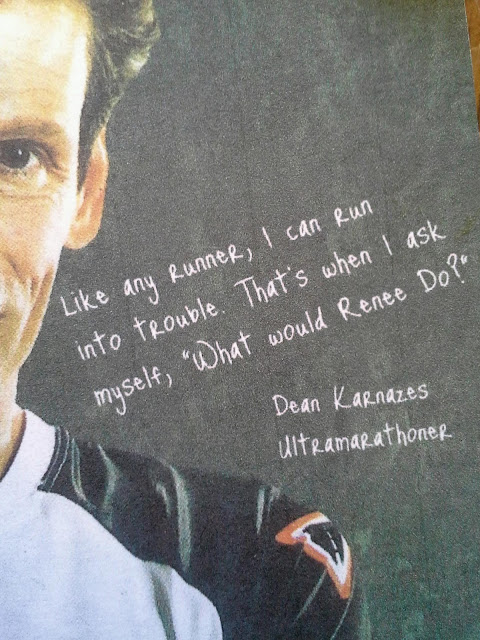 Like any runner, I can run
into trouble. That's when I ask
myself, "What would Renee Do?"
Dean Karnazes
Ultramarathoner